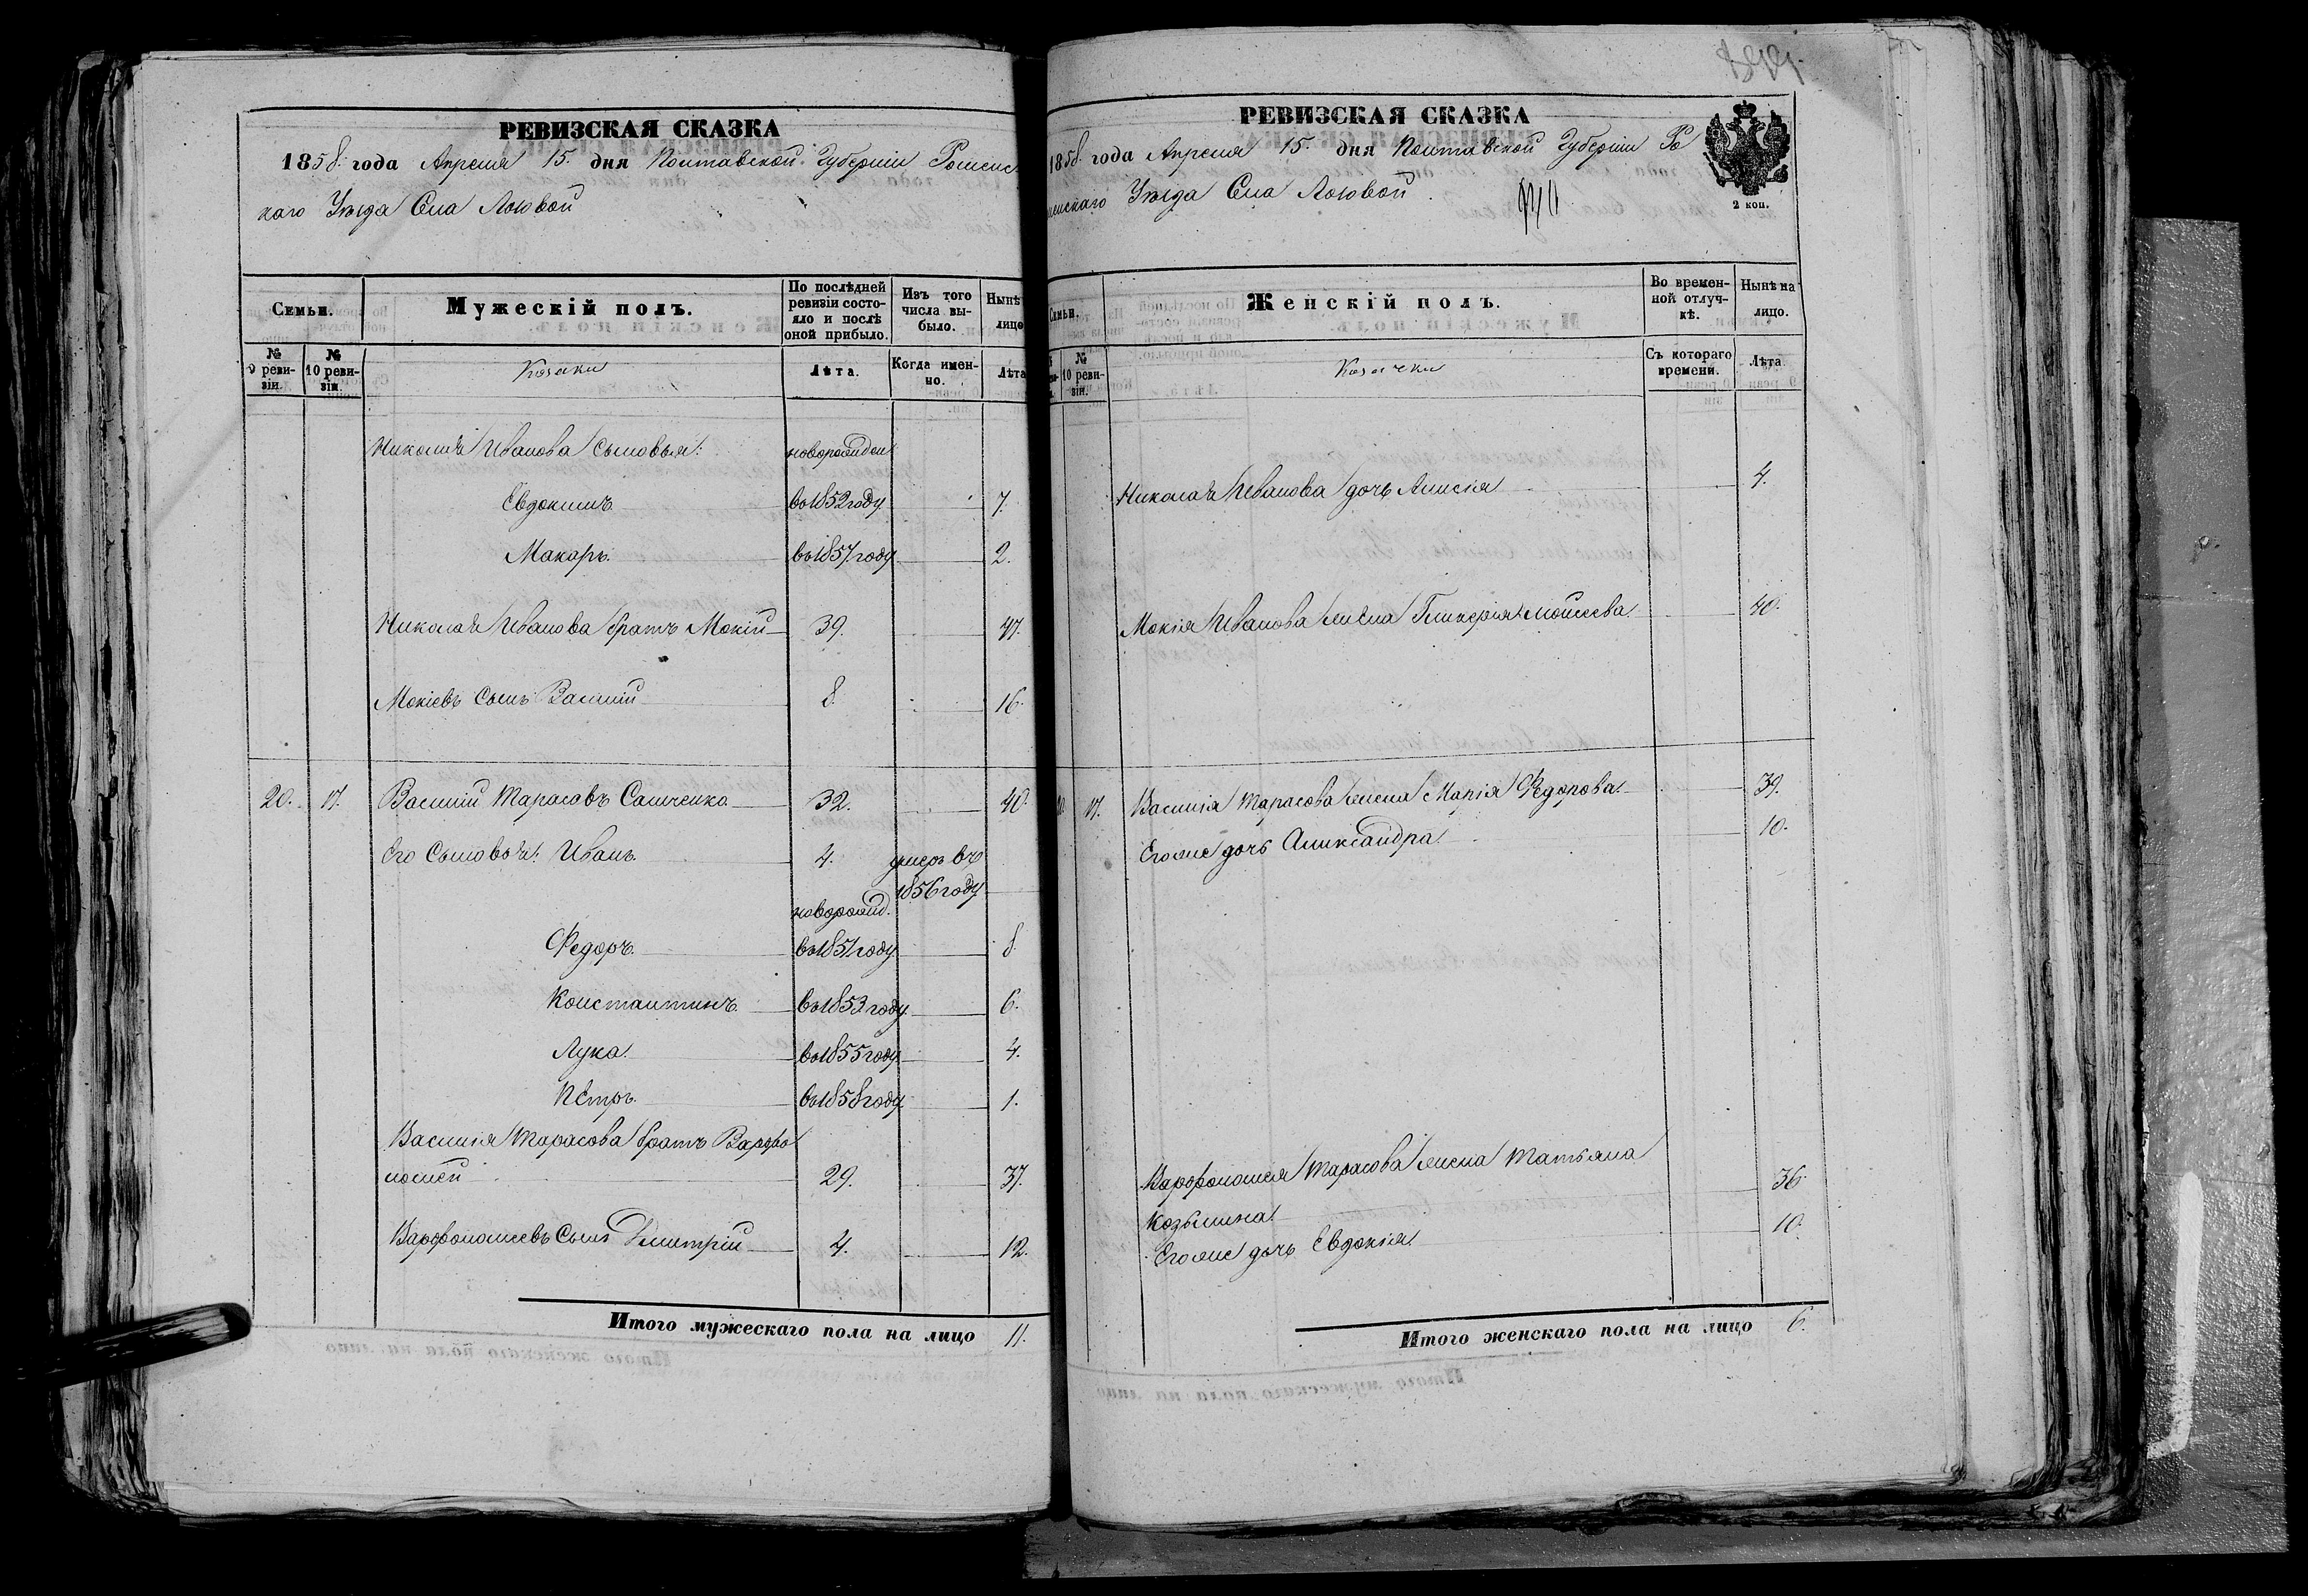 РЕВИЗСКАЯ СКАЗКА
1858 года Апреля 15. дня Полтавской Губерніи Роменс
каго Уѣзда Села Логовой
Семьи.
Мужескій полъ.
По послѣдней ревизіи состояло и послѣ оной прибыло.
Изъ того числа выбыло.
Нынѣ лицо
№ 9 ревизіи.
№ 10 ревизіи.
Козаки
Лѣта.
Когда именно.
Лѣта
Николая Иванова Сыновья: новорожден
Евдокимъ во 1852 году 7.
Макаръ. во 1857 году 2.
Николая Иванова братъ Мокій 39. 47.
Мокіевъ Сынъ Василій 8. 16.
20. 17. Василій Тарасовъ Сапченко 32. 40.
Его Сыновья: Иванъ. 4. умеръ въ
1856 году
новорожд.
Федоръ. во 1851 году 8.
Константинъ. во 1853 году 6.
Лука. во 1855 году 4.
Петръ. во 1858 году 1.
Василія Тарасова братъ Варфо
ломей 29. 37.
Варфоломеевъ Сынъ Дмитрій 4. 12.
Итого мужескаго пола на лицо 11.
РЕВИЗСКАЯ СКАЗКА
1858 года Апреля 15. дня Полтавской Губерніи Ро
менскаго Уѣзда Села Логовой
2 коп.
Семьи.
Женскій полъ.
Во временной отлучкѣ.
Нынѣ на лицо.
№ 10 ревизіи.
Козачки
Съ котораго времени.
Лѣта.
Николая Иванова дочь Анисія 4.
Мокія Иванова жена Гликерія Моисеева 40.
17. Василія Тарасова жена Марія Федорова. 39.
Его же дочь Александра. 10.
Варфоломея Тарасова жена Татьяна
Козьмина. 36.
Его же дочь Евдокія. 10.
Итого женскаго пола на лицо 6.